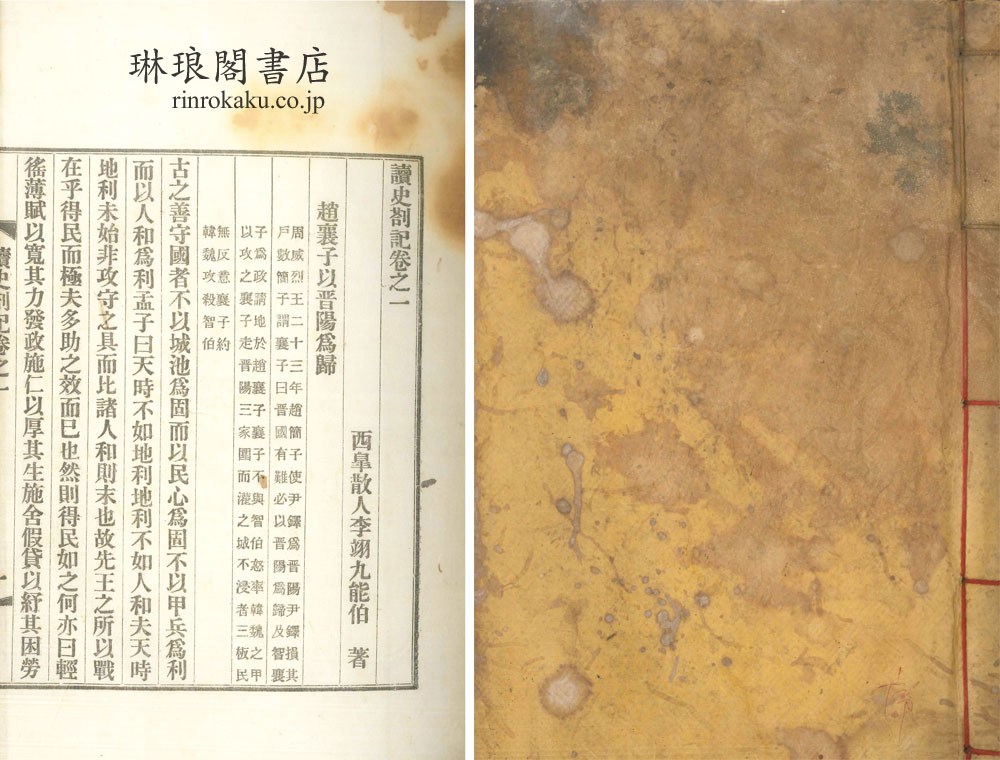 琳琅閣書店
rinrokaku.co.jp
讀史劄記卷之一
西臯散人李翊九能伯 著
趙襄子以晋陽爲歸
周威烈王二十三年趙簡子使尹鐸爲晋陽尹鐸損其
戶數簡子謂襄子曰晋國有難必以晋陽爲歸及智襄
子爲政請地於趙襄子襄子不與智伯怒率韓魏之甲
以攻之襄子走晋陽三家圍而灌之城不浸者三板民
無反意襄子約
韓魏攻殺智伯
古之善守國者不以城池爲固而以民心爲固不以甲兵爲利
而以人和爲利孟子曰天時不如地利地利不如人和夫天時
地利未始非攻守之具而比諸人和則末也故先王之所以戰
在乎得民而極夫多助之效而已也然則得民如之何亦曰輕
徭薄賦以寬其力發政施仁以厚其生施舍假貸以紓其困勞
讀史劄記卷之一